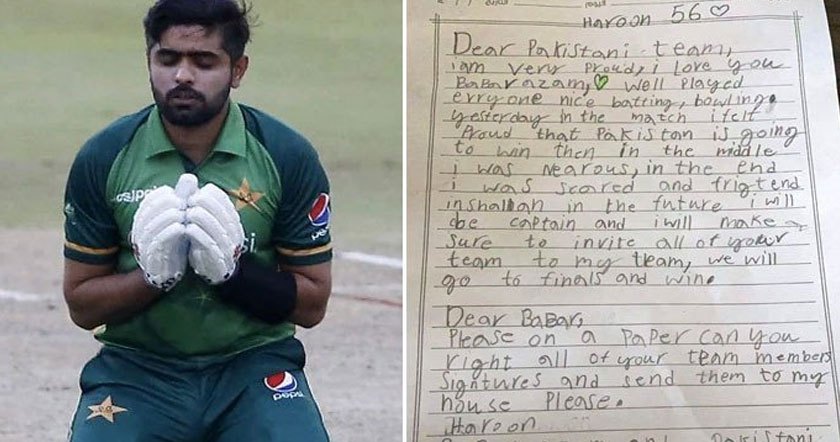 pepsi
pepsi
Haroon 56
Dear Pakistani team,
i am very proud, i love you
BaBar azam, well played
erryone nice batting, bowling.
yesterday in the match i felt
Proud that Pakistan is going
to win then in the middle
i was nearous, in the end
i was scared and frigtend
inshallah in the future i will
be captain and i will make
sure to invite all of your
team to my team, we will
go to finals and win.
Dear BaBar,
Please on a paper can you
right all of your team members
signtures and send them to my
house please.
Haroon